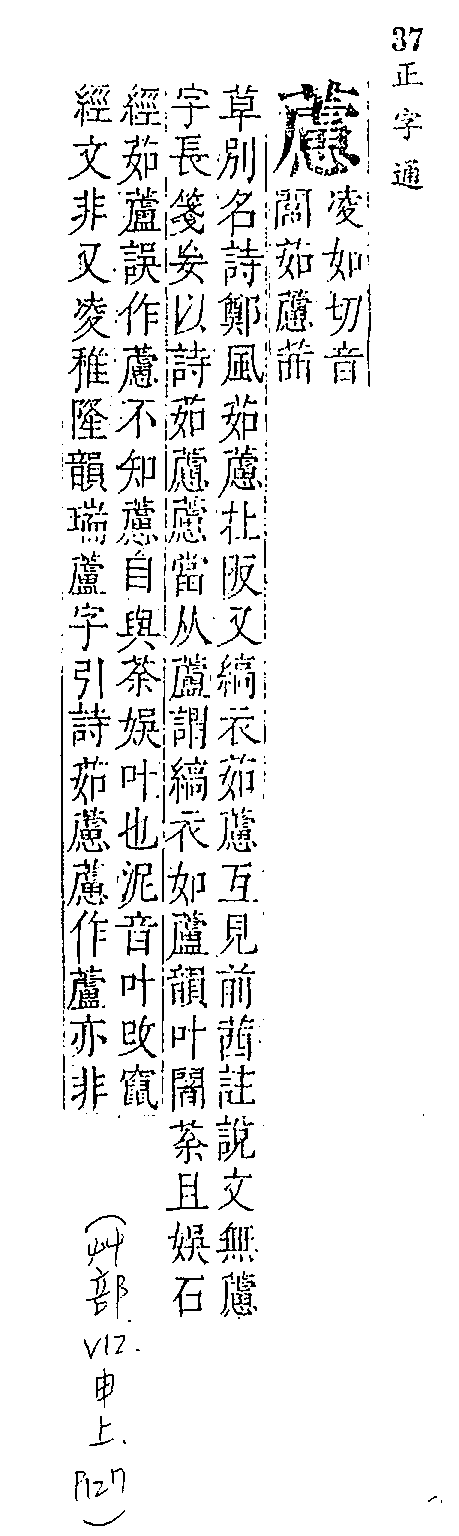 37 正字通
藘
凌如切音
閭茹藘茜
草別名詩鄭風茹藘在阪又縞衣茹藘互見前茜註說文無藘
字長箋妄以詩茹藘藘當从蘆謂縞衣如蘆韻叶闍荼且娛石
經茹蘆誤作藘不知藘自與荼娛叶也泥音叶改竄
經文非又凌稚隆韻瑞蘆字引詩茹藘藘作蘆亦非
(艸部 V12. 申上. P127)